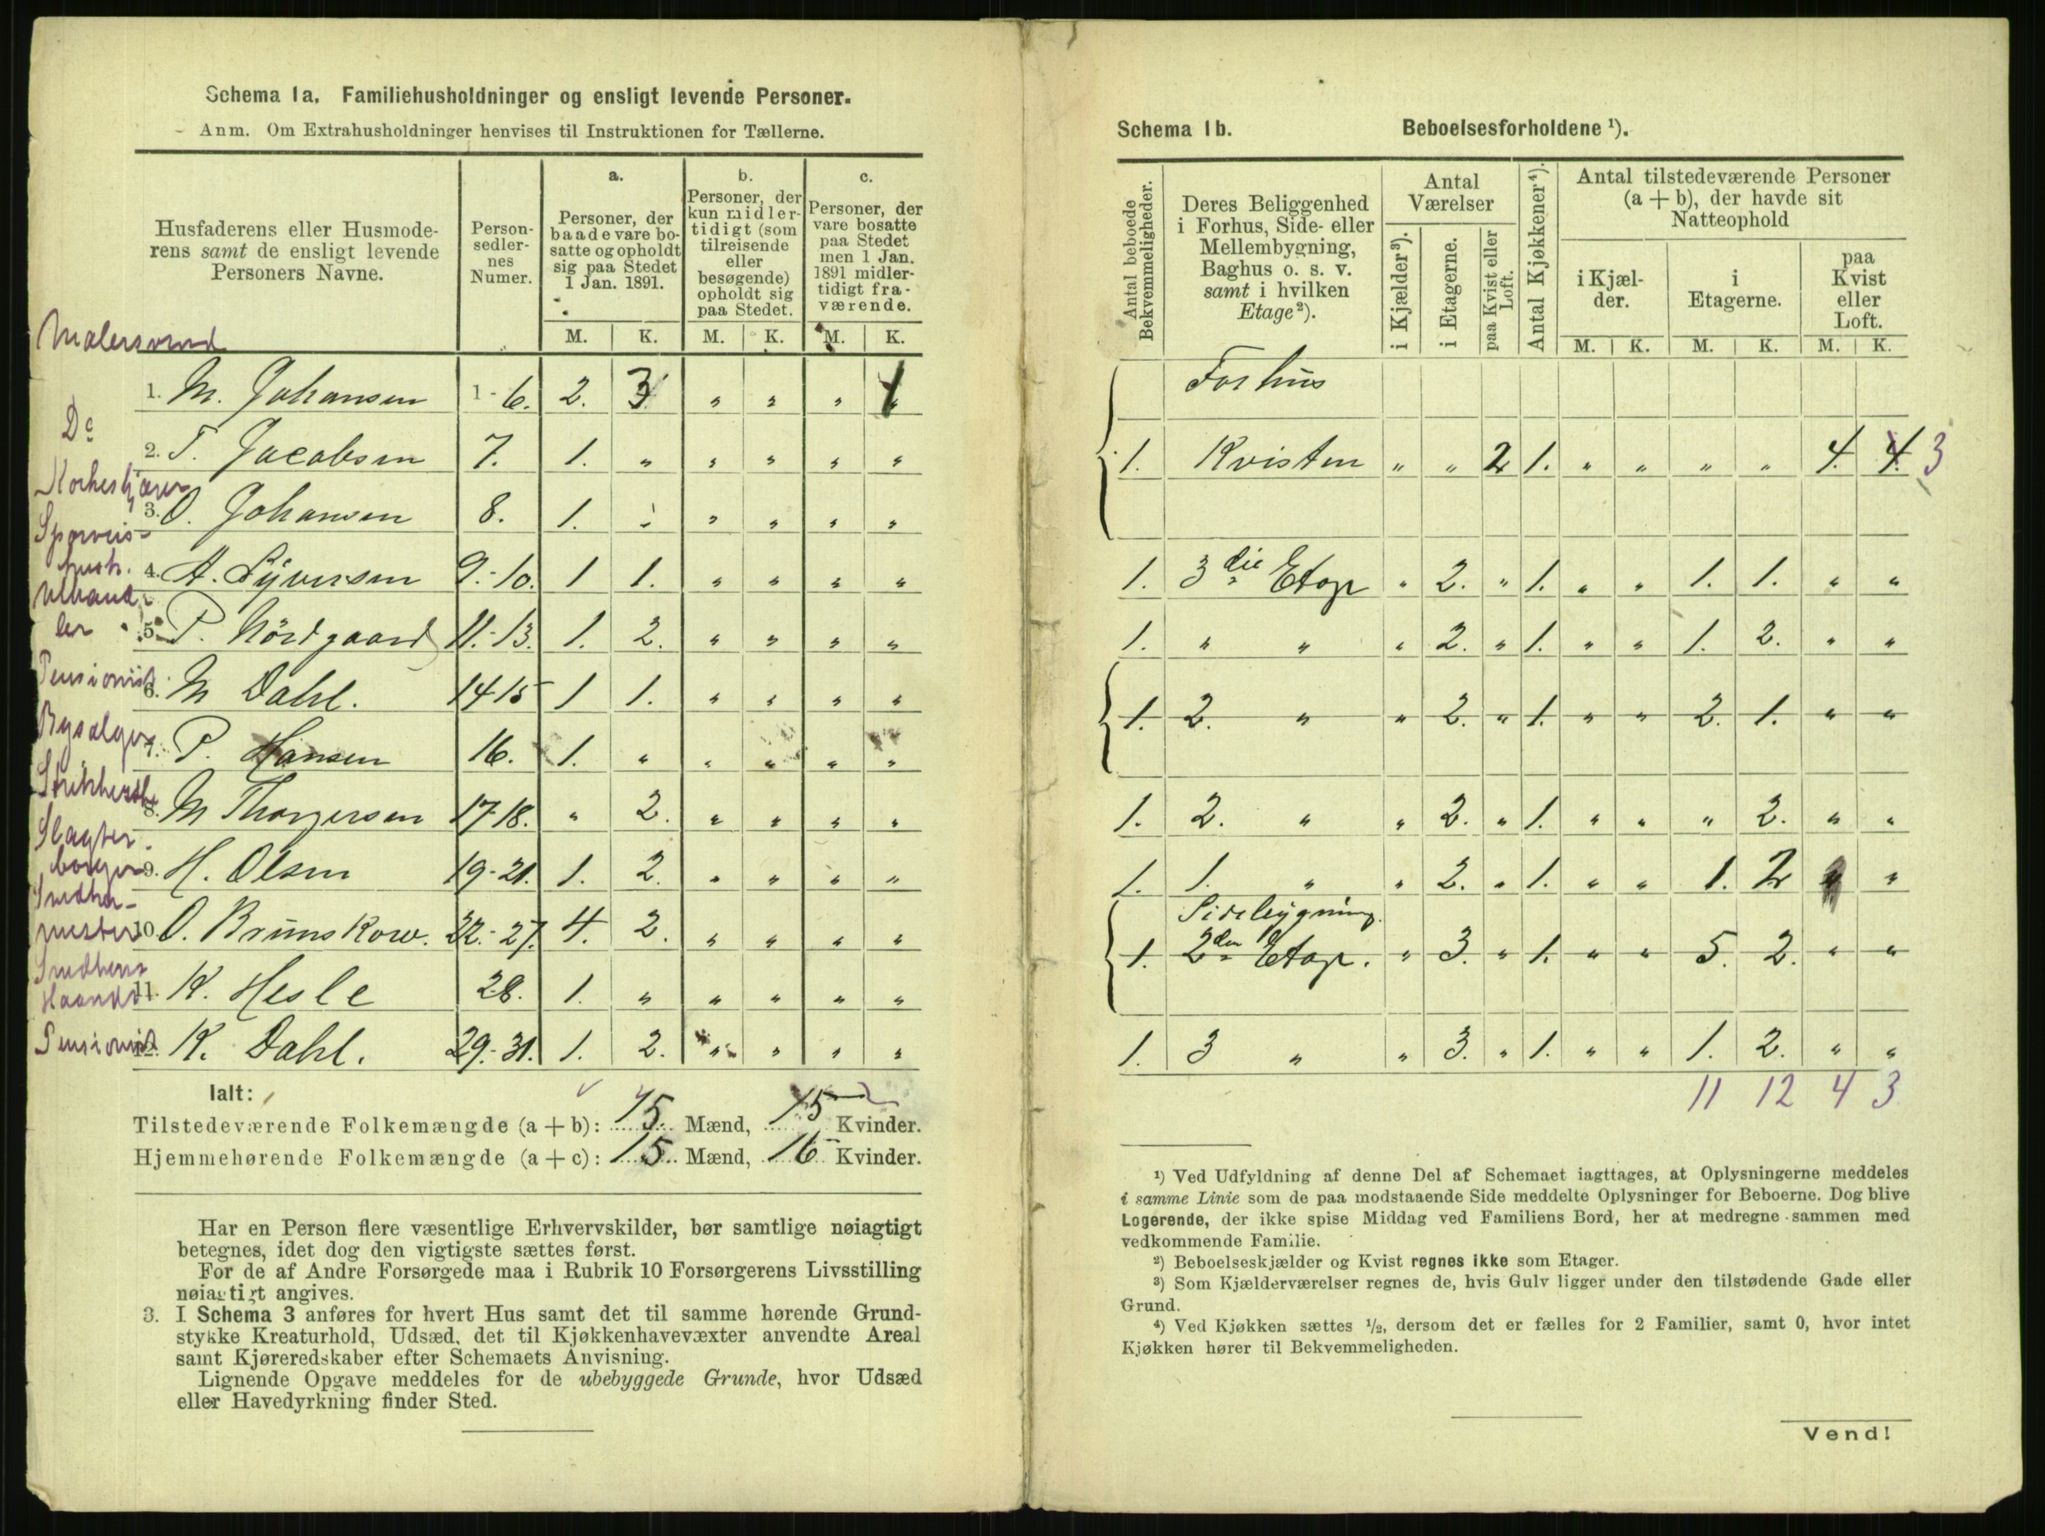 Schema 1a. Familiehusholdninger og ensligt levende Personer.
Anm. Om Extrahusholdninger henvises til Instruktionen for Tællerne.
Husfaderens eller Husmode-
rens samt de ensligt levende
Personers Navne.
Person-
sedler-
nes
Numer.
a.
Personer, der
baade vare bo-
satte og opholdt
sig paa Stedet
1 Jan. 1891.
b.
Personer, der
kun midler-
tidigt (som
tilreisende
eller
besøgende)
opholdt sig
paa Stedet.
c.
Personer, der
vare bosatte
paa Stedet
men 1 Jan.
1891 midler-
tidigt fra-
værende.
M. K. M. K. M. K.
Malersvend
1. M. Johansen 1-6. 2. 3 „ „ „ 1
Do
2. T. Jacobsen 7. 1. „ „ „ „ „
3. O. Johansen 8. 1. „ „ „ „ „
Sporveis-
4. A. Syversen 9.-10. 1 1. „ „ „ „
Ulhand-
ler
5. P. Nordgaard 11.-13. 1. 2. „ „ „ „
Pensionist
6. M Dahl. 14-15 1 1. „ „ „ „
Bysælger
7. P. Hansen 16. 1. „ „ „ „ „
8. M Thorgersen 17-18. „ 2. „ „ „ „
Slagter-
borger
9. H. Olsen 19-21. 1. 2. „ „ „ „
Snedker-
mester
10. O. Brunskow. 22.-27. 4. 2. „ „ „ „
11. K. Hesle 28. 1. „ „ „ „ „
Pensionist
12. K. Dahl. 29.-31. 1. 2. „ „ „ „
Ialt:
Tilstedeværende Folkemængde (a + b): 15. Mænd, 15 Kvinder.
Hjemmehørende Folkemængde (a + c): 15. Mænd, 16 Kvinder.
Har en Person flere væsentlige Erhvervskilder, bør samtlige nøiagtigt
betegnes, idet dog den vigtigste sættes først.
For de af Andre Forsørgede maa i Rubrik 10 Forsørgerens Livsstilling
nøiagtigt angives.
3. I Schema 3 anføres for hvert Hus samt det til samme hørende Grund-
stykke Kreaturhold, Udsæd, det til Kjøkkenhavevæxter anvendte Areal
samt Kjøreredskaber efter Schemaets Anvisning.
Lignende Opgave meddeles for de ubebyggede Grunde, hvor Udsæd
eller Havedyrkning finder Sted.
Schema 1b. Beboelsesforholdene ¹).
Antal beboede
Bekvemmeligheder.
Deres Beliggenhed
i Forhus, Side- eller
Mellembygning,
Baghus o. s. v.
samt i hvilken
Etage²).
Antal
Værelser
i Kjælder³).
i Etagerne.
paa Kvist eller
Loft.
Antal Kjøkkener⁴).
Antal tilstedeværende Personer
(a + b), der havde sit
Natteophold
i Kjæl-
der.
i
Etagerne.
paa
Kvist
eller
Loft.
M. K. M. K. M. K.
Forhus
1. Kvisten „ „ 2 1. „ „ „ „ 4. 4. 3
1. 3die Etage „ 2. „ 1. „ „ 1. 1. „ „
1. „ „ „ 2. „ 1. „ „ 1. 2. „ „
1. 2. „ „ 2. „ 1. „ „ 2. 1. „ „
1. 2. „ „ 2. „ 1. „ „ „ 2. „ „
1. 1. „ „ 2. „ 1. „ „ 1. 2 „ „
Sidebygning.
1. 2den Etage. „ 3. „ 1. „ „ 5. 2. „ „
1. 3 „ „ 3. „ 1. „ „ 1. 2. „ „
11 12 4 3
¹) Ved Udfyldning af denne Del af Schemaet iagttages, at Oplysningerne meddeles
i samme Linie som de paa modstaaende Side meddelte Oplysninger for Beboerne. Dog blive
Logerende, der ikke spise Middag ved Familiens Bord, her at medregne sammen med
vedkommende Familie.
²) Beboelseskjælder og Kvist regnes ikke som Etager.
³) Som Kjælderværelser regnes de, hvis Gulv ligger under den tilstødende Gade eller
Grund.
⁴) Ved Kjøkken sættes ½, dersom det er fælles for 2 Familier, samt 0, hvor intet
Kjøkken hører til Bekvemmeligheden.
Vend!